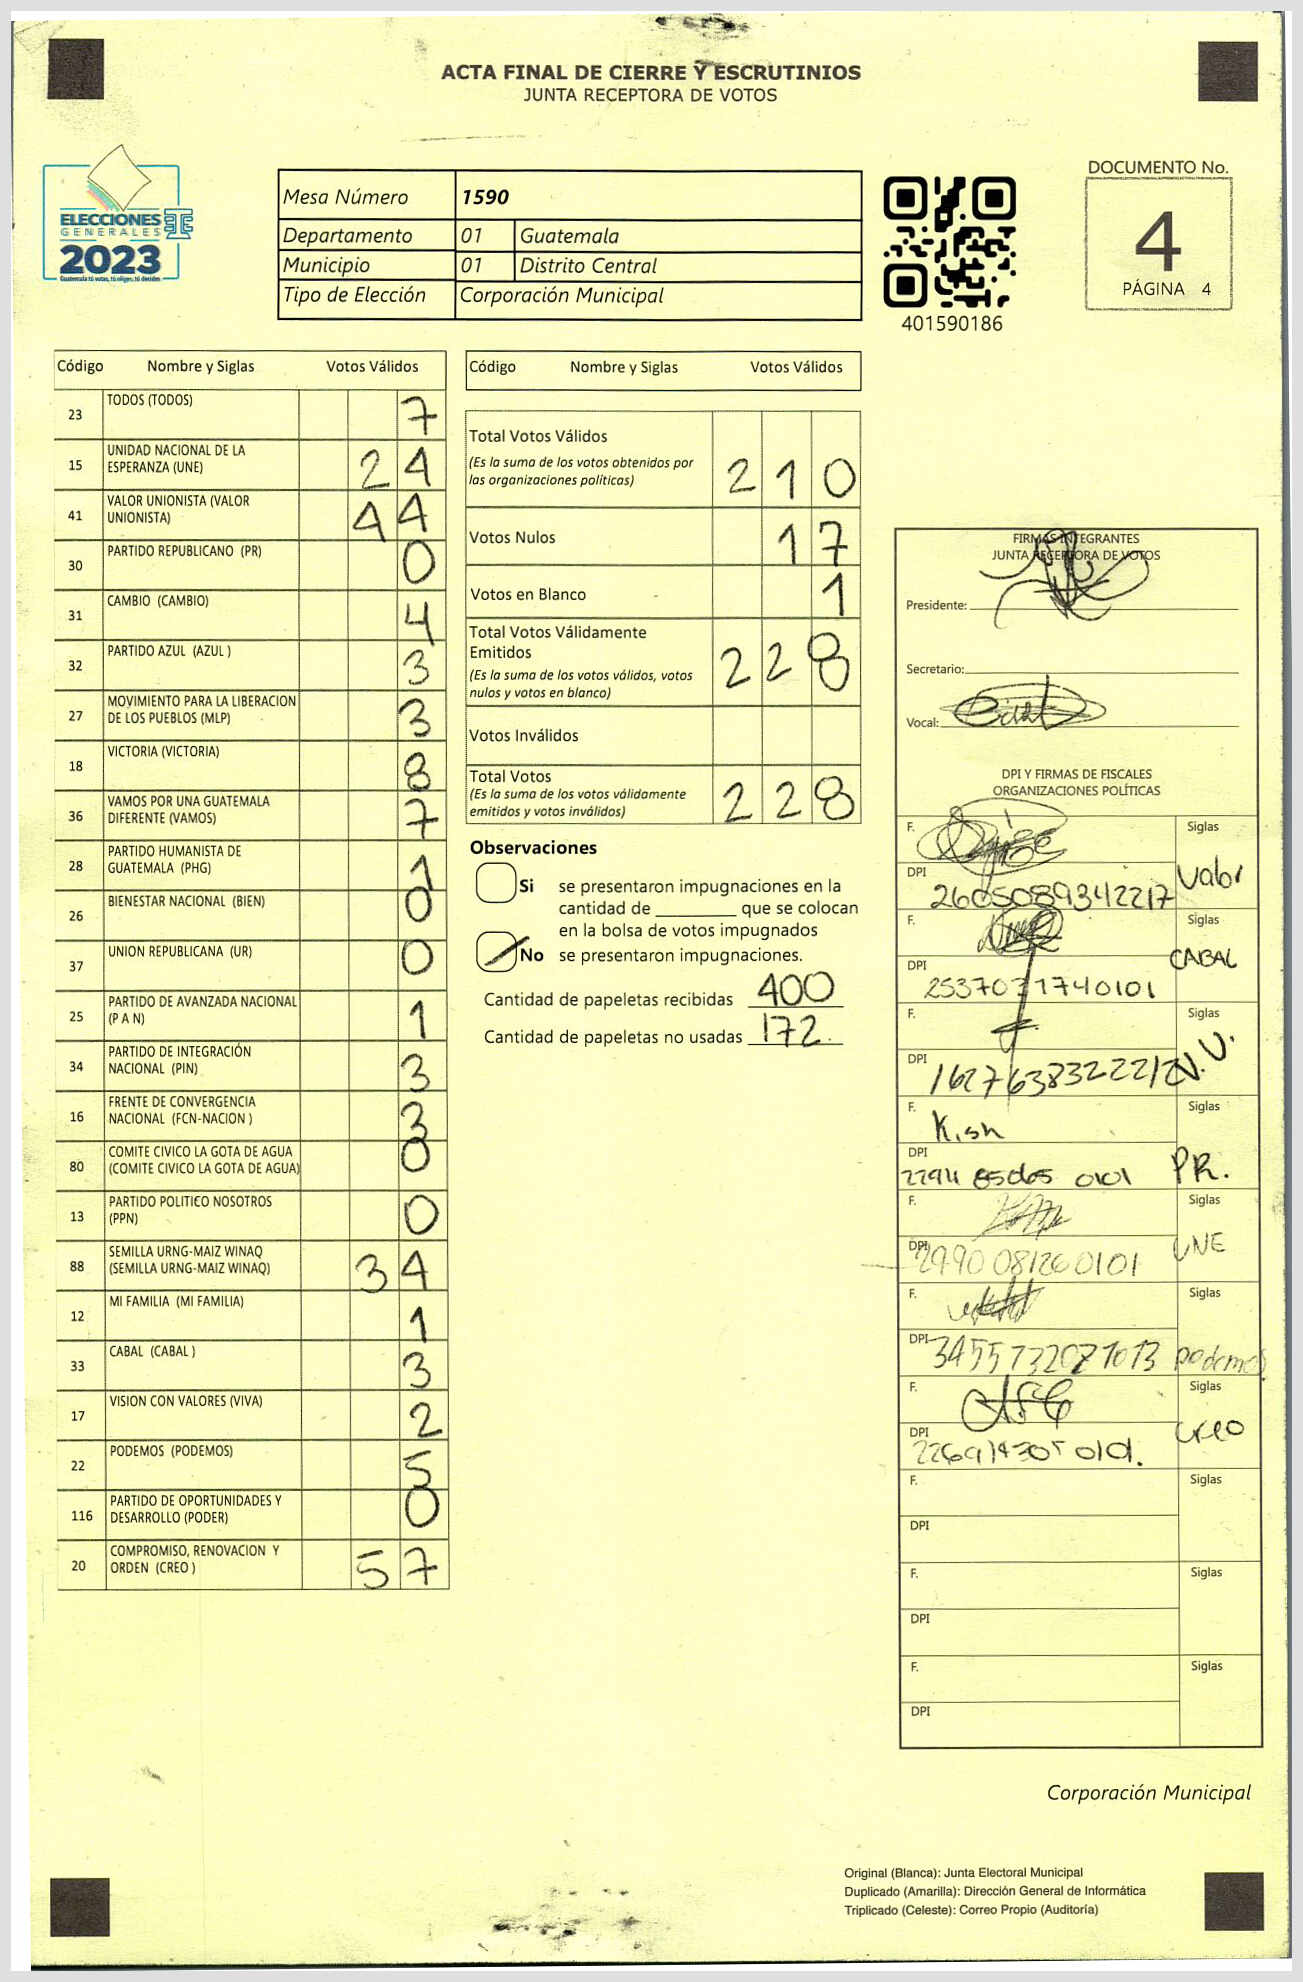 ACTA FINAL DE CIERRE Y ESCRUTINIOS
JUNTA RECEPTORA DE VOTOS
ELECCIONES
GENERALES
2023
Guatemala tú votas, tú eliges, tú decides
Mesa Número 1590
Departamento 01 Guatemala
Municipio 01 Distrito Central
Tipo de Elección Corporación Municipal
401590186
DOCUMENTO No.
4
PÁGINA 4
Código Nombre y Siglas Votos Válidos
23 TODOS (TODOS) 7
15 UNIDAD NACIONAL DE LA
ESPERANZA (UNE) 24
41 VALOR UNIONISTA (VALOR
UNIONISTA) 44
30 PARTIDO REPUBLICANO (PR) 0
31 CAMBIO (CAMBIO) 4
32 PARTIDO AZUL (AZUL ) 3
27 MOVIMIENTO PARA LA LIBERACION
DE LOS PUEBLOS (MLP) 3
18 VICTORIA (VICTORIA) 8
36 VAMOS POR UNA GUATEMALA
DIFERENTE (VAMOS) 7
28 PARTIDO HUMANISTA DE
GUATEMALA (PHG) 1
26 BIENESTAR NACIONAL (BIEN) 0
37 UNION REPUBLICANA (UR) 0
25 PARTIDO DE AVANZADA NACIONAL
(P A N) 1
34 PARTIDO DE INTEGRACIÓN
NACIONAL (PIN) 3
16 FRENTE DE CONVERGENCIA
NACIONAL (FCN-NACION ) 3
80 COMITE CIVICO LA GOTA DE AGUA
(COMITE CIVICO LA GOTA DE AGUA) 0
13 PARTIDO POLITICO NOSOTROS
(PPN) 0
88 SEMILLA URNG-MAIZ WINAQ
(SEMILLA URNG-MAIZ WINAQ) 34
12 MI FAMILIA (MI FAMILIA) 1
33 CABAL (CABAL ) 3
17 VISION CON VALORES (VIVA) 2
22 PODEMOS (PODEMOS) 5
116 PARTIDO DE OPORTUNIDADES Y
DESARROLLO (PODER) 0
20 COMPROMISO, RENOVACION Y
ORDEN (CREO ) 57
Código Nombre y Siglas Votos Válidos
Total Votos Válidos
(Es la suma de los votos obtenidos por
las organizaciones políticas) 210
Votos Nulos 17
Votos en Blanco 1
Total Votos Válidamente
Emitidos
(Es la suma de los votos válidos, votos
nulos y votos en blanco) 228
Votos Inválidos
Total Votos
(Es la suma de los votos válidamente
emitidos y votos inválidos) 228
Observaciones
Si se presentaron impugnaciones en la
cantidad de ________ que se colocan
en la bolsa de votos impugnados
No se presentaron impugnaciones.
Cantidad de papeletas recibidas 400
Cantidad de papeletas no usadas 172
FIRMAS INTEGRANTES
JUNTA RECEPTORA DE VOTOS
Presidente:
Secretario:
Vocal:
DPI Y FIRMAS DE FISCALES
ORGANIZACIONES POLÍTICAS
F. Siglas
DPI 2605089342217 Valor
F. Siglas
DPI 2537031740101 CABAL
F. Siglas
DPI V.U.
F. Kish Siglas
DPI PR.
F. Siglas
DPI 2990081260101 UNE
F. Siglas
DPI podemos
F. Siglas
DPI creo
F. Siglas
DPI
F. Siglas
DPI
F. Siglas
DPI
Corporación Municipal
Original (Blanca): Junta Electoral Municipal
Duplicado (Amarilla): Dirección General de Informática
Triplicado (Celeste): Correo Propio (Auditoría)